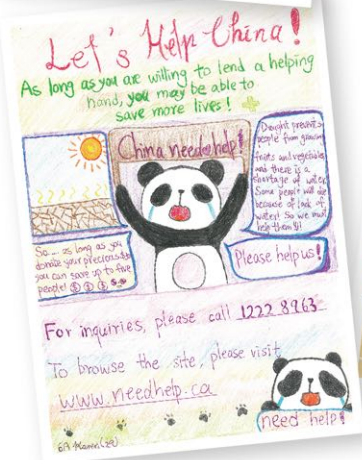 Let's Help China!
As long as you are willing to lend a helping
hand, you may be able to
save more lives!
China need help!
Drought prevents
people from growing
fruits and vegetables
and there is a
shortage of water.
Some people will die
because of lack of
water! So we must
help them!
So.... as long as you
donate your precious $
you can save up to five
people!
Please help us!
For inquiries, please call 1222 8963
To browse the site, please visit
www.needhelp.ca
need help!
6A